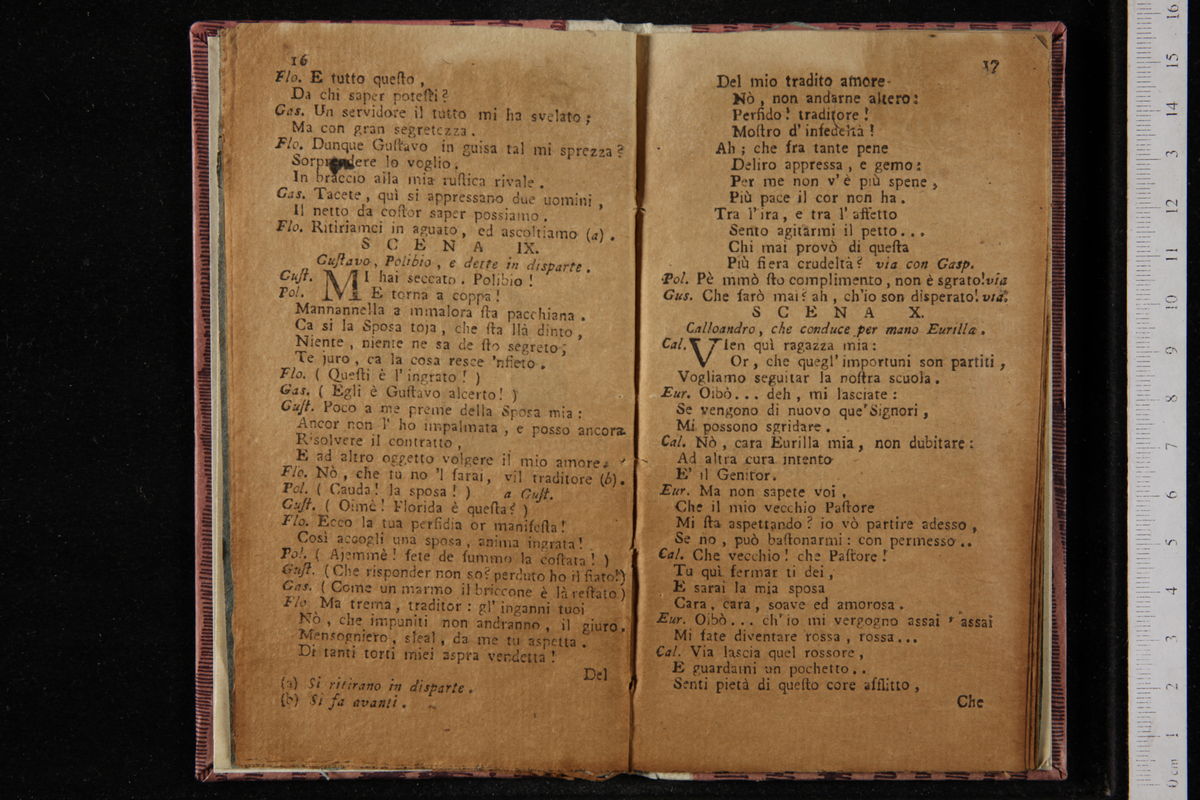 16
Flo. E tutto questo,
Da chi saper potesti?
Gas. Un servidore il tutto mi ha svelato;
Ma con gran segretezza.
Flo. Dunque Gustavo in guisa tal mi sprezza?
Sorprendere lo voglio.
In braccio alla mia rustica rivale.
Gas. Tacete, quì si appressano due uomini,
Il netto da costor saper possiamo.
Flo. Ritiriamci in aguato, ed ascoltiamo (a).
SCENA IX.
Gustavo, Polibio, e dette in disparte.
Gust. MI hai seccato. Polibio!
Pol. E torna a coppa!
Mannannella a mmalora sta pacchiana.
Ca si la Sposa toja, che sta llà dinto,
Niente, niente ne sa de sto segreto;
Te juro, ca la cosa resce 'nfieto.
Flo. (Questi è l'ingrato!)
Gas. (Egli è Gustavo alcerto!)
Gust. Poco a me preme della Sposa mia:
Ancor non l'ho impalmata, e posso ancora
Risolvere il contratto,
E ad altro oggetto volgere il mio amore.
Flo. Nò, che tu no 'l farai, vil traditore (b).
Pol. (Cauda! la sposa!) a Gust.
Gust. (Oimè! Florida è questa?)
Flo. Ecco la tua perfidia or manifesta!
Così accogli una sposa, anima ingrata!
Pol. (Ajemmè! fete de fummo la costata!)
Gust. (Che risponder non so? perduto ho il fiato!)
Gas. (Come un marmo il briccone è là restato)
Flo. Ma trema, traditor: gl'inganni tuoi
Nò, che impuniti non andranno, il giuro.
Mensogniero, sleal, da me tu aspetta.
Di tanti torti miei aspra vendetta!
Del
(a) Si ritirano in disparte.
(b) Si fa avanti.
17
Del mio tradito amore
Nò, non andarne altero:
Perfido! traditore!
Mostro d'infedeltà!
Ah; che fra tante pene
Deliro appressa, e gemo:
Per me non v'è più spene,
Più pace il cor non ha.
Tra l'ira, e tra l'affetto
Sento agitarmi il petto...
Chi mai provò di questa
Più fiera crudeltà? via con Gasp.
Pol. Pè mmò sto complimento, non è sgrato! via
Gus. Che farò mai? ah, ch'io son disperato! via.
SCENA X.
Calloandro, che conduce per mano Eurilla.
Cal. VIen quì ragazza mia:
Or, che quegl'importuni son partiti,
Vogliamo seguitar la nostra scuola.
Eur. Oibò... deh, mi lasciate:
Se vengono di nuovo que'Signori,
Mi possono sgridare.
Cal. Nò, cara Eurilla mia, non dubitare:
Ad altra cura intento
E' il Genitor.
Eur. Ma non sapete voi,
Che il mio vecchio Pastore
Mi sta aspettando? io vò partire adesso,
Se no, può bastonarmi: con permesso..
Cal. Che vecchio! che Pastore!
Tu quì fermar ti dei,
E sarai la mia sposa
Cara, cara, soave ed amorosa.
Eur. Oibò... ch'io mi vergogno assai, assai
Mi fate diventare rossa, rossa...
Cal. Via lascia quel rossore,
E guardami un pochetto..
Senti pietà di questo core afflitto,
Che
0 cm 1 2 3 4 5 6 7 8 9 10 11 12 13 14 15 16